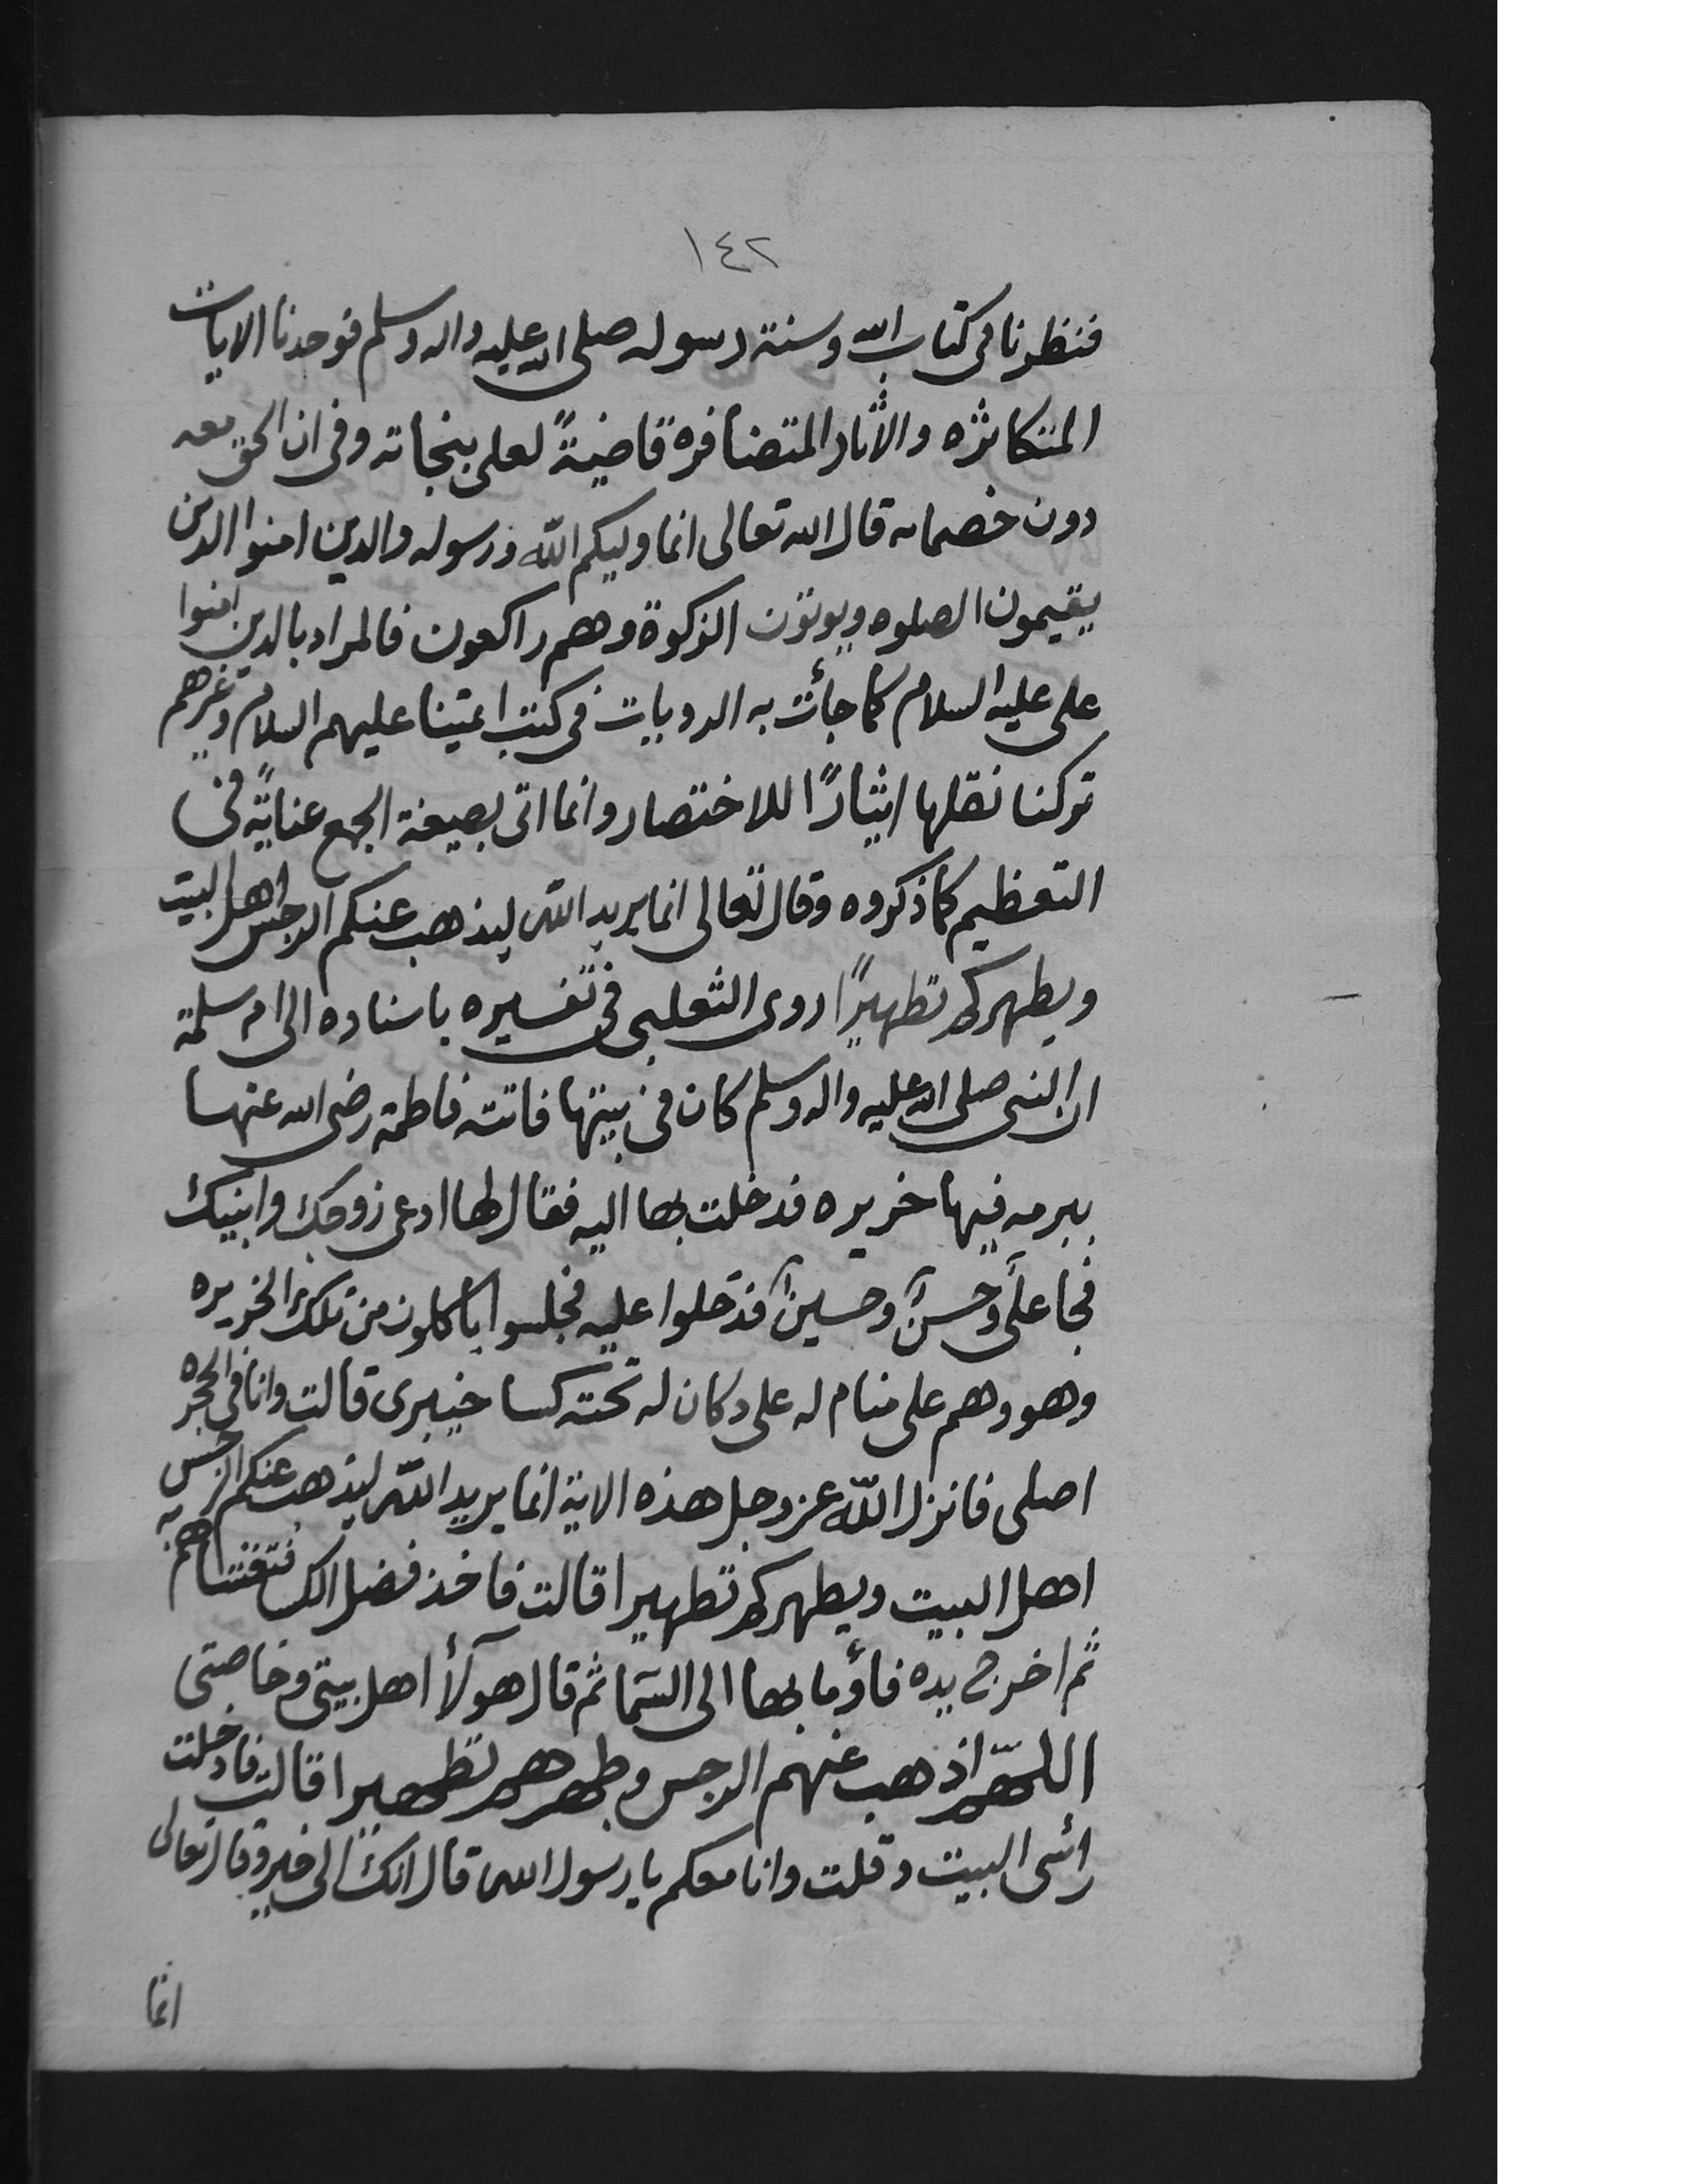 ١٤٢
فنظرنا فى كتاب الله وسنة رسوله صلى الله عليه واله وسلم فوجدنا الايات
المتكاثره والأثار المتضافرة قاضيةً لعلى بنجاته وفى ان الحق معه
دون خصمانه قال الله تعالى انما وليكم الله ورسوله والذين امنوا الذين
يقيمون الصلوه ويوتون الزكوة وهم راكعون فالمراد بالذين امنوا
على عليه السلام كما جأت به الروايات فى كتب ائمتنا عليهم السلام وغيرهم
تركنا نقلها ايثارًا للاختصار وانما اتى بصيغة الجمع عنايةً فى
التعظيم كما ذكروه وقال تعالى انما يريد الله ليذهب عنكم الرجس اهل البيت
ويطهركم تطهيرًا روى الثعلبى فى تفسيره باسناده الى ام سلمة
ان النبى صلى الله عليه واله وسلم كان فى بيتها فاتته فاطمة رضى الله عنها
ببرمه فيها خريره فدخلت بها اليه فقال لها ادعى زوجك وابنيك
فجا على وحسن وحسين فدخلوا عليه فجلسوا ياكلون من تلك الخريره
وهو وهم على منام له على دكان له تحته كسا خيبرى قالت وانا فى الحجره
اصلى فانزل الله عز وجل هذه الاية انما يريد الله ليذهب عنكم الرجس
اهل البيت ويطهركم تطهيرا قالت فاخذ فضل الكسا فغشاهم به
ثم اخرج يده فأوما بها الى السما ثم قال هولآ اهل بيتى وخاصتى
اللهم اذهب عنهم الرجس وطهرهم تطهيرا قالت فادخلت
رأسى البيت وقلت وانا معكم يا رسول الله قال انك الى خير وقال تعالى
انما